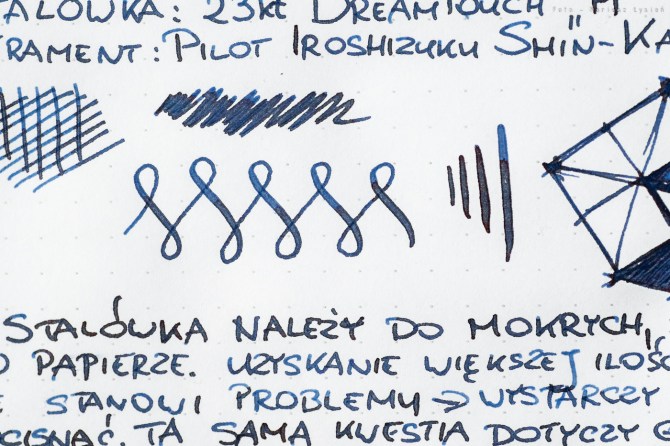 TALÓWKA: 23kt DREAMTOUCH
TRAMENT: PILOT IROSHIZUKU SHIN-KA
STALÓWKA NALEŻY DO MOKRYCH,
PAPIERZE. UZYSKANIE WIĘKSZEJ ILOŚC
E STANOWI PROBLEMU → WYSTARCZY
OCISNĄĆ. TA SAMA KWESTIA DOTYCZY